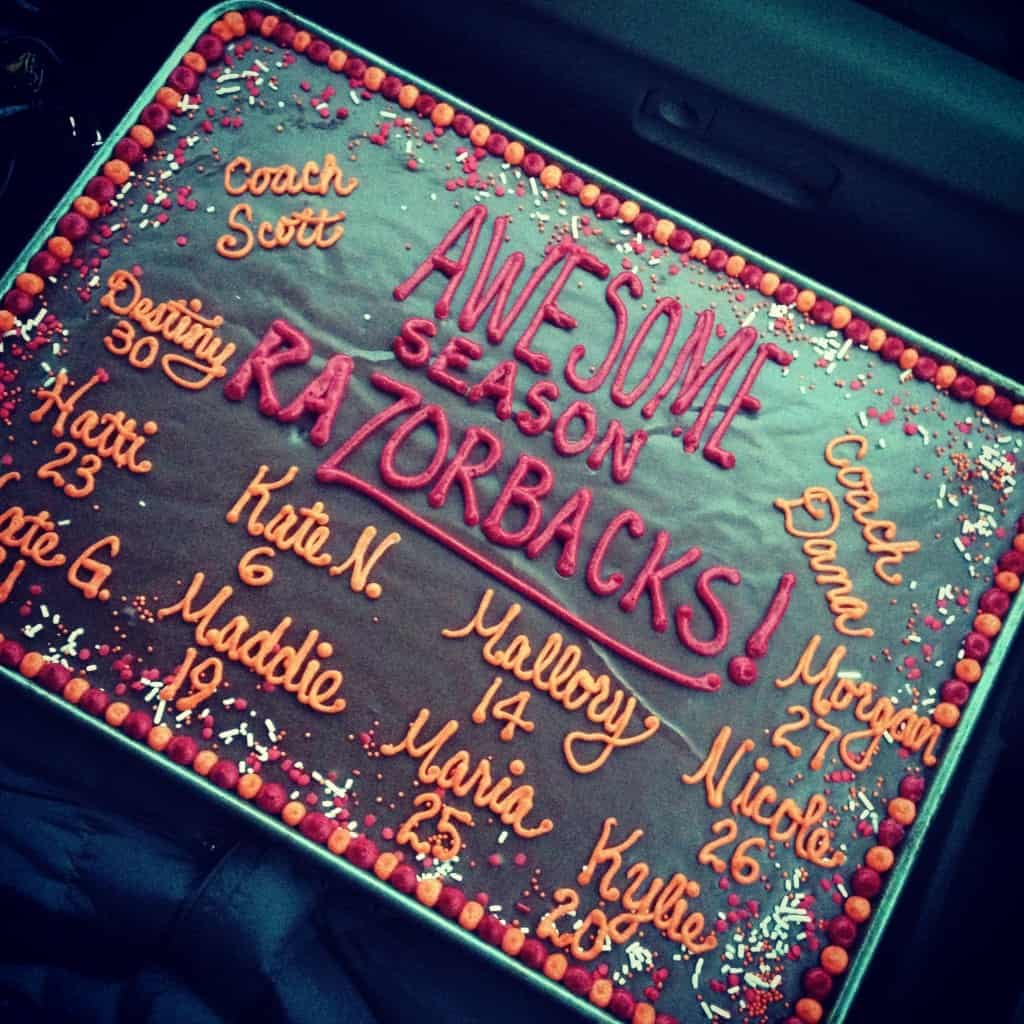 Coach
Scott
AWESOME
SEASON
RAZORBACKS!
Destiny
30
Hatti
23
G.
Kate N.
6
Maddie
19
Mallory
14
Maria
25
Coach
Dana
Morgan
27
Nicole
26
Kylie
20